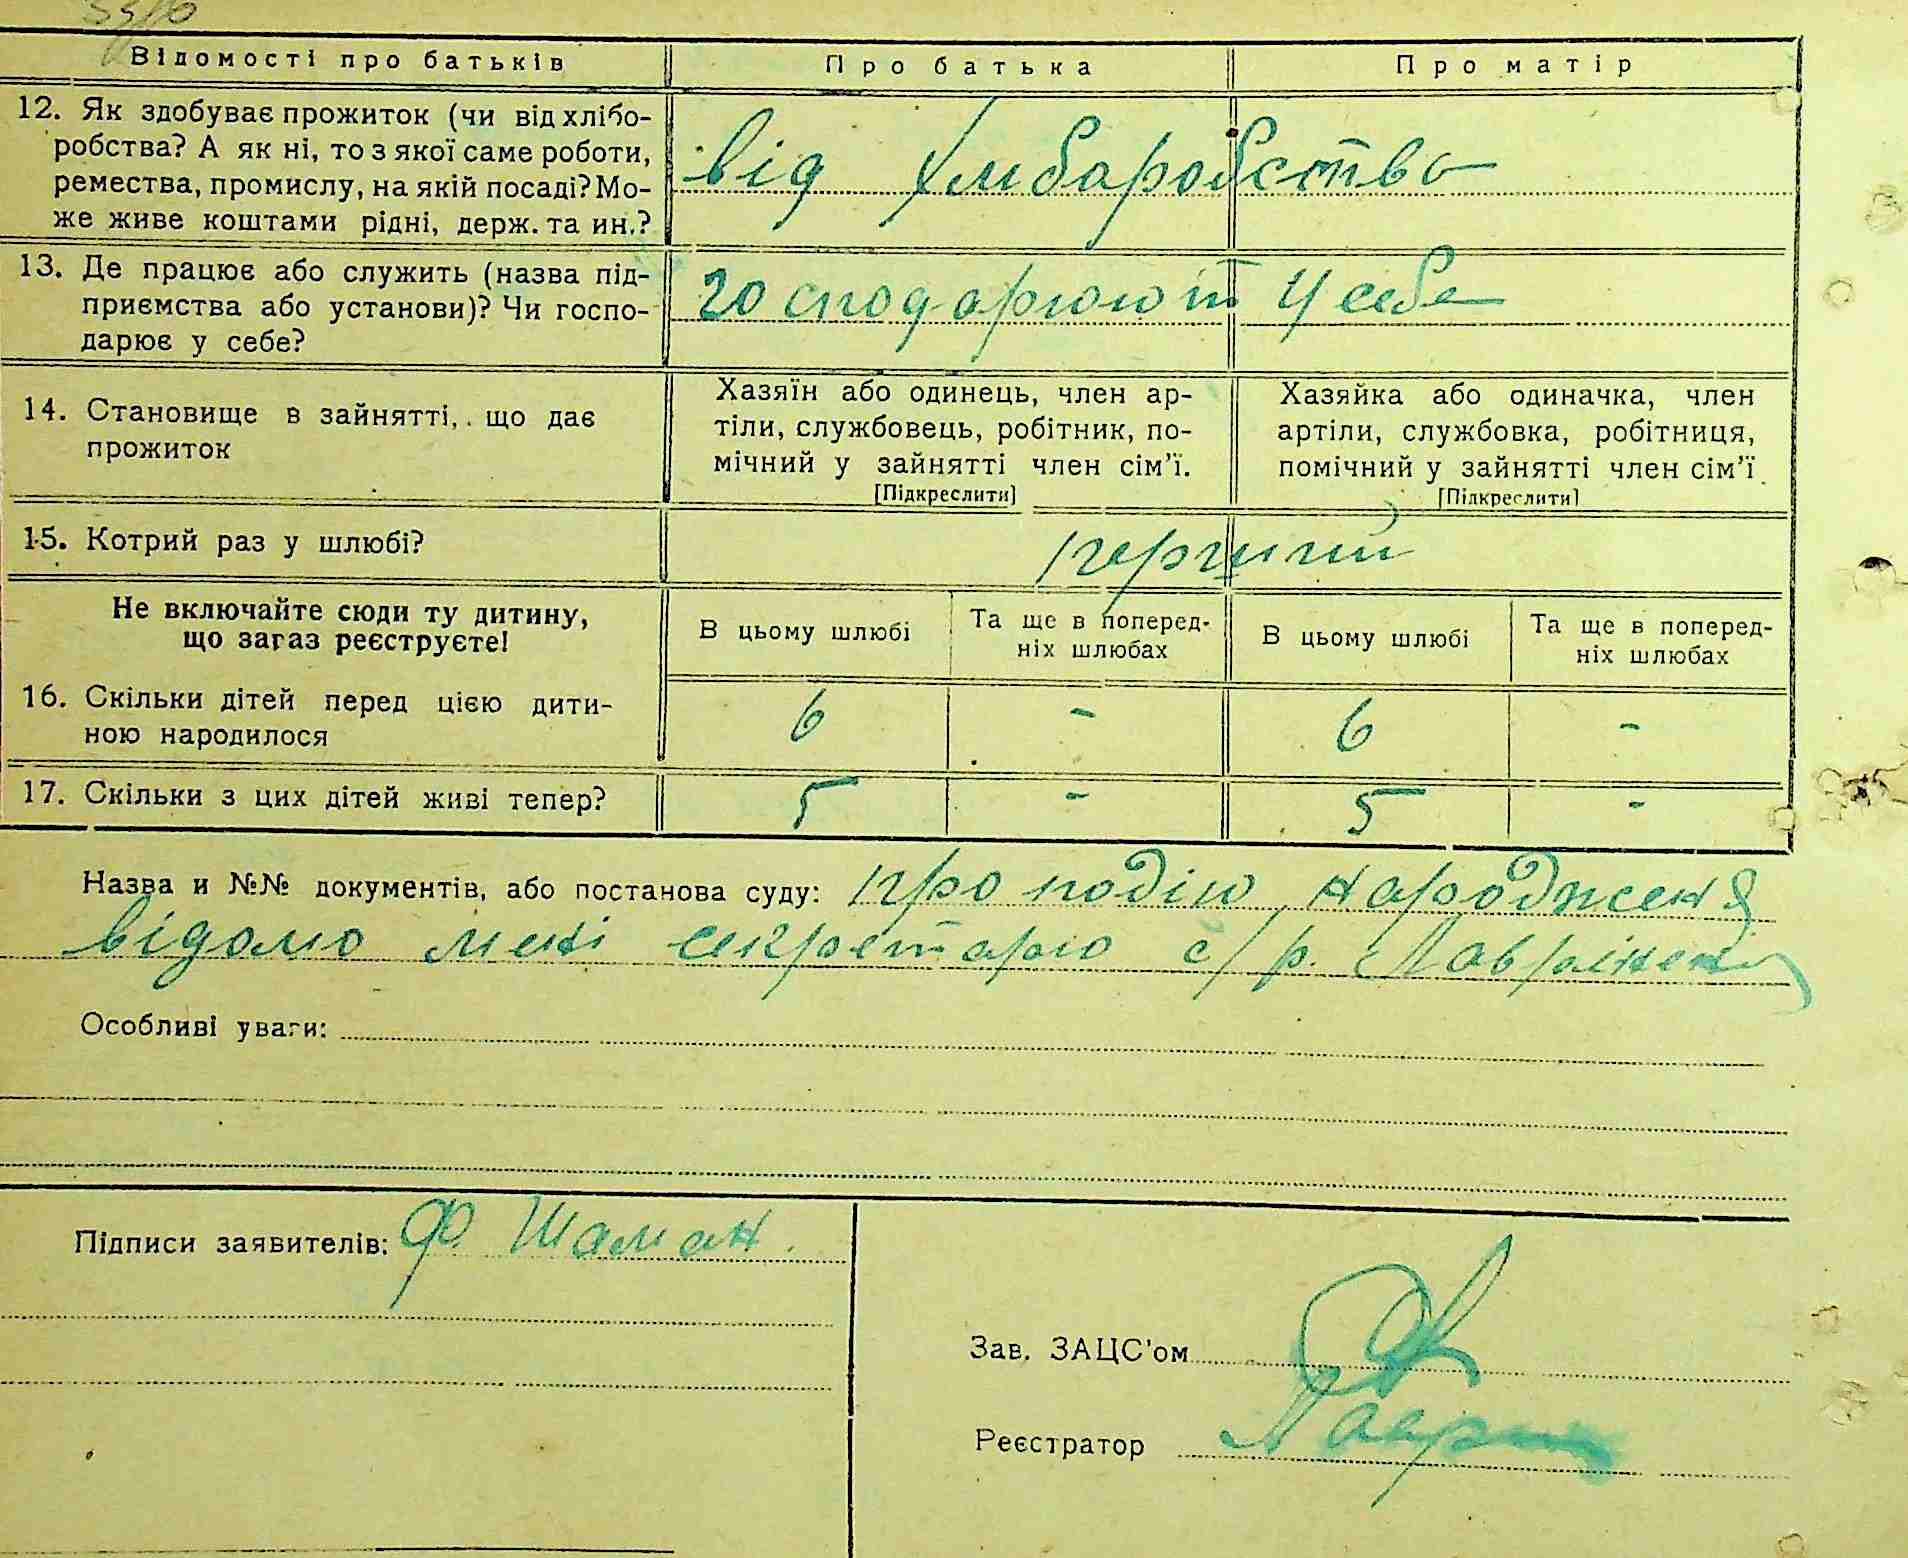 Відомості про батьків
Про батька
Про матір
12. Як здобуває прожиток (чи від хлібо-
робства? А як ні, то з якої саме роботи,
ремества, промислу, на якій посаді? Мо-
же живе коштами рідні, держ. та ин.?
від хлібаробства
13. Де працює або служить (назва під-
приємства або установи)? Чи госпо-
дарює у себе?
господарюют у себе
14. Становище в зайнятті, що дає
прожиток
Хазяїн або одинець, член ар-
тіли, службовець, робітник, по-
мічний у зайнятті член сім'ї.
[Підкреслити]
Хазяйка або одиначка, член
артіли, службовка, робітниця,
помічний у зайнятті член сім'ї.
[Підкреслити]
15. Котрий раз у шлюбі?
перший
Не включайте сюди ту дитину,
що зараз реєструєте!
В цьому шлюбі
Та ще в поперед-
ніх шлюбах
В цьому шлюбі
Та ще в поперед-
ніх шлюбах
16. Скільки дітей перед цією дити-
ною народилося
6 - 6 -
17. Скільки з цих дітей живі тепер?
5 - 5 -
Назва и №№ документів, або постанова суду: про подію народженя
відомо мені секретарю с/р.
Особливі уваги:
Підписи заявителів: Ф. Шаман.
Зав. ЗАЦС'ом
Реєстратор